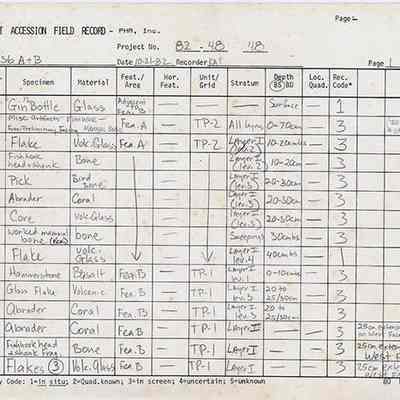 T ACCESSION FIELD RECORD - PHR, Inc.
Page:
Project No. 82 - 48 48
56 A+B
Date 10-21-82 Recorder
Page 1
Specimen Material Feat./Area Hor. Feat. Unit/Grid Stratum Depth (BS) BD Loc. Quad. Rec. Code*
Gin Bottle Glass Adjacent to Fea. B — — — Surface — 1
Misc Artifacts Fea. A — TP-2 All layers 0-70cm — 3
Flake Volc. Glass Fea A — TP-2 Layer I 10-20cmbs — 3
Fishhook head + shank Bone — Layer I 10-20cm — 3
Pick Bird bone — Layer I (lev. 3) 20-30cm — 3
Abrader Coral — Layer I (lev. 3) 20-30cm — 3
Core Volc Glass — Layer I (lev. 3) 20-30cm — 3
worked mammal bone — Sweepings 30cmbs — 3
Flake Volc. Glass — Layer I lev. 4 40cmbs — 1
Hammerstone Basalt Fea. B — TP-1 Layer I lev. 1 0-10cmbs — 3
Glass Flake Volcanic Fea. B — TP-1 Layer I lev. 3 20 to 25/30cm — 3
abrader Coral Fea. B — TP-1 Layer I lev. 3 20 to 25/30cm — 3
abrader Coral Fea B — TP-1 Layer II — — 3 25cm
Fishhook head + shank frag. Bone Fea. B — TP-1 Layer I — — 3 25cm
Flakes (3) Volc. Glass Fea. B — TP-1 Layer I — — 3 25cm
y Code: 1=in situ; 2=Quad.known; 3=in screen; 4=uncertain; 5=unknown